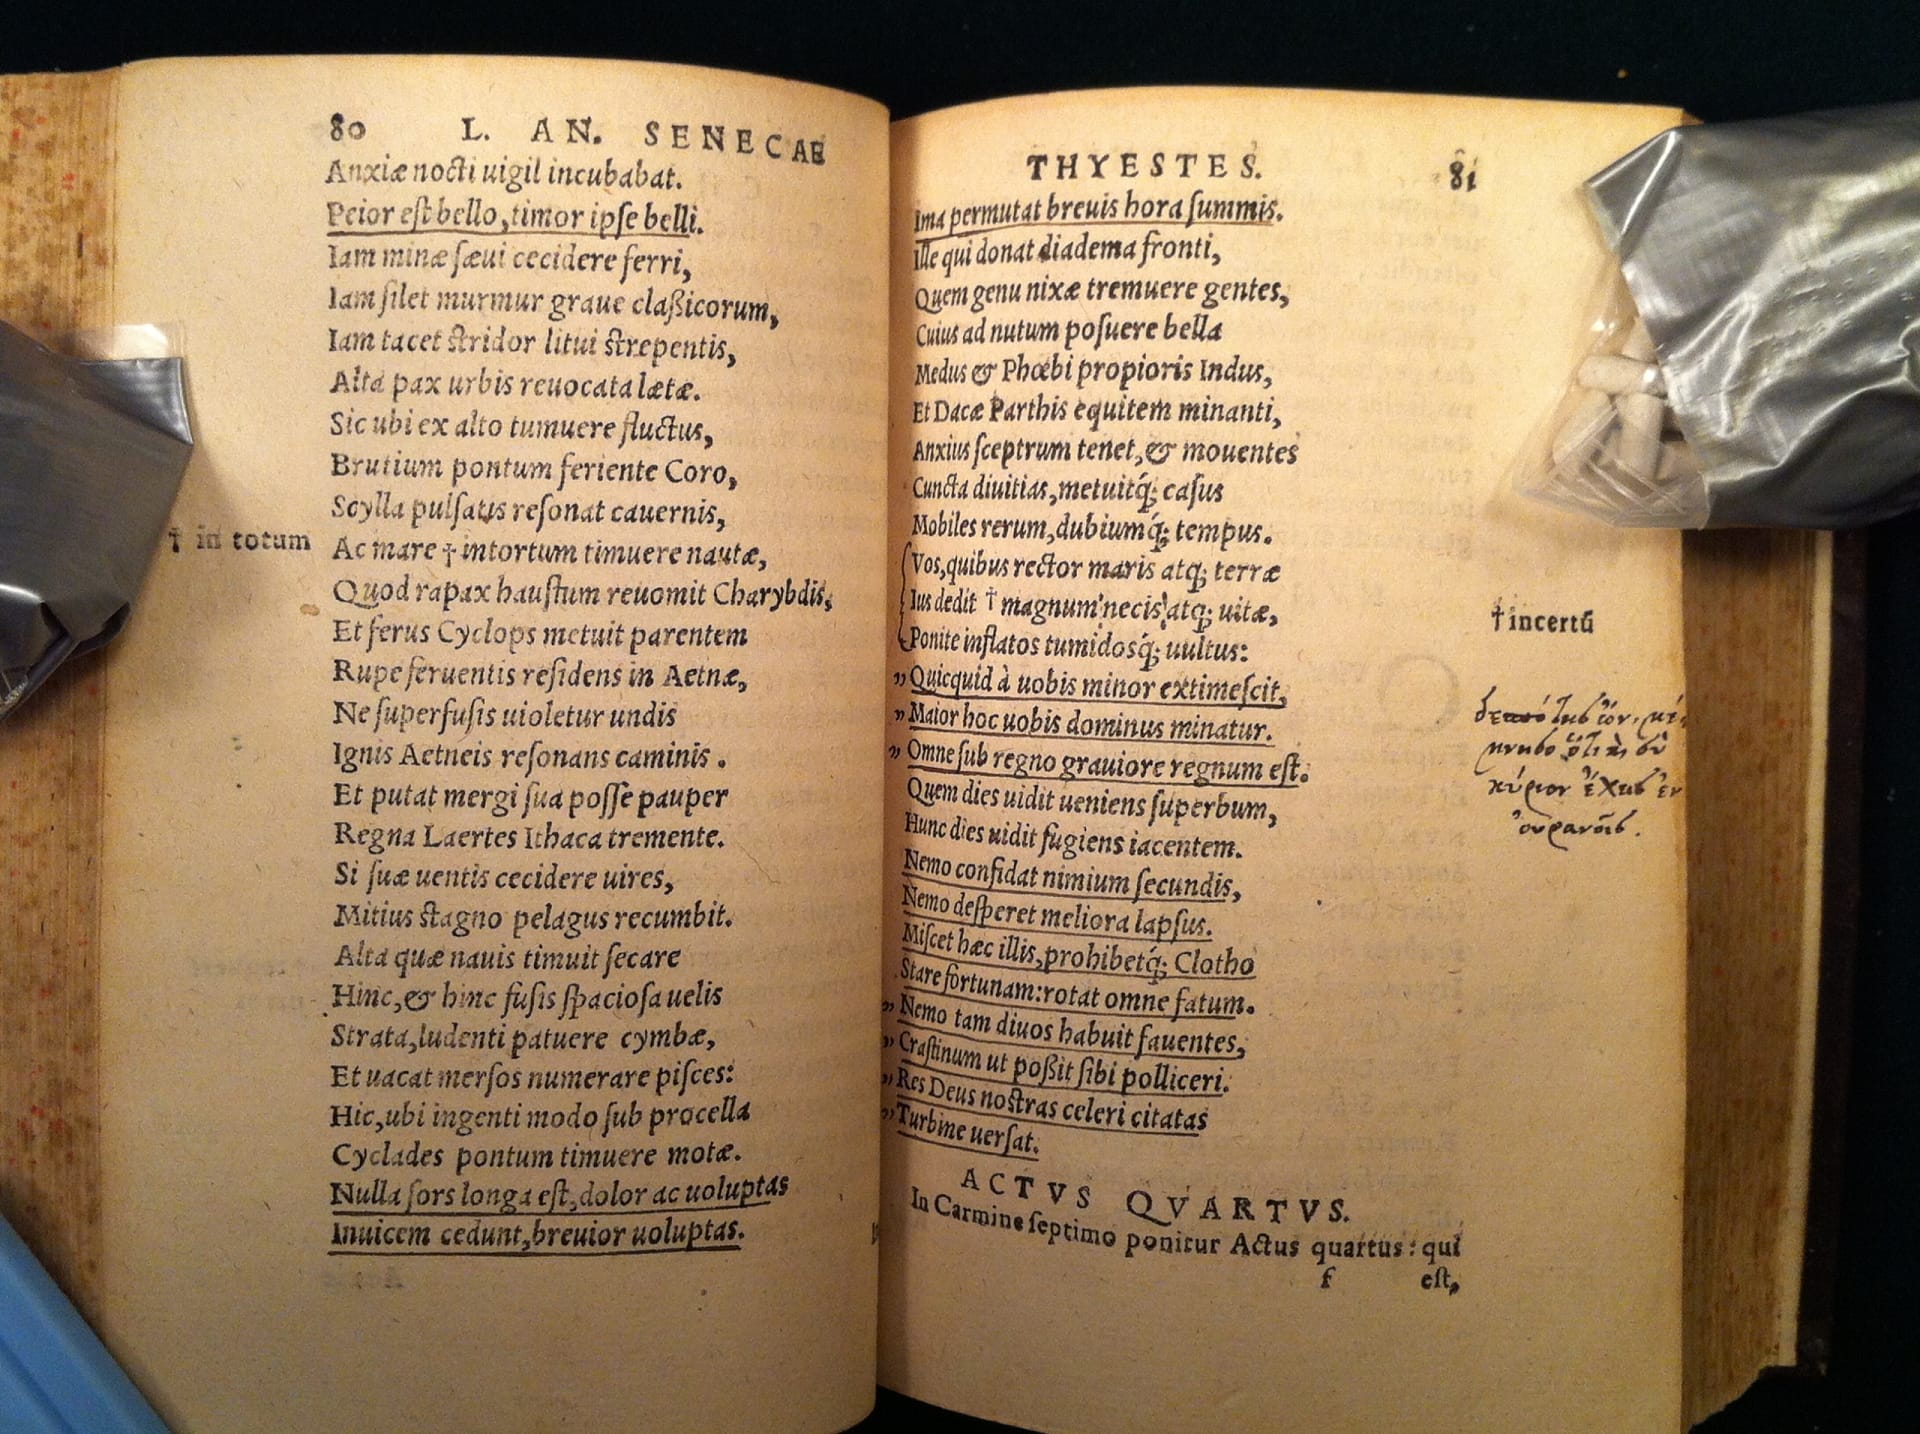 80 L. AN. SENECAE
Anxiæ nocti uigil incubabat.
Peior eſt bello, timor ipſe belli.
Iam minæ ſæui cecidere ferri,
Iam ſilet murmur graue claßicorum,
Iam tacet ſtridor litui ſtrepentis,
Alta pax urbis reuocata lætæ.
Sic ubi ex alto tumuere fluctus,
Brutium pontum feriente Coro,
Scylla pulſatis reſonat cauernis,
† in totum
Ac mare † intortum timuere nautæ,
Quod rapax hauſtum reuomit Charybdis,
Et ferus Cyclops metuit parentem
Rupe feruentis reſidens in Aetnæ,
Ne ſuperfuſis uioletur undis
Ignis Aetneis reſonans caminis.
Et putat mergi ſua poſſe pauper
Regna Laertes Ithaca tremente.
Si ſuæ uentis cecidere uires,
Mitius ſtagno pelagus recumbit.
Alta quæ nauis timuit ſecare
Hinc, & hinc fuſis ſpacioſa uelis
Strata, ludenti patuere cymbæ,
Et uacat merſos numerare piſces:
Hic, ubi ingenti modo ſub procella
Cyclades pontum timuere motæ.
Nulla ſors longa eſt, dolor ac uoluptas
Inuicem cedunt, breuior uoluptas.
THYESTES. 81
Ima permutat breuis hora ſummis.
Ille qui donat diadema fronti,
Quem genu nixæ tremuere gentes,
Cuius ad nutum poſuere bella
Medus & Phœbi propioris Indus,
Et Dacæ Parthis equitem minanti,
Anxius ſceptrum tenet, & mouentes
Cuncta diuitias, metuitq́; caſus
Mobiles rerum, dubiumq́; tempus.
Vos, quibus rector maris atq; terræ
Ius dedit † magnum necis atq; uitæ,
† incertū
Ponite inflatos tumidosq́; uultus:
„ Quicquid à uobis minor extimeſcit,
„ Maior hoc uobis dominus minatur.
„ Omne ſub regno grauiore regnum eſt.
Quem dies uidit ueniens ſuperbum,
Hunc dies uidit fugiens iacentem.
Nemo confidat nimium ſecundis,
Nemo deſperet meliora lapſus.
Miſcet hæc illis, prohibetq́; Clotho
Stare fortunam: rotat omne fatum.
„ Nemo tam diuos habuit fauentes,
„ Craſtinum ut poßit ſibi polliceri.
„ Res Deus noſtras celeri citatas
„ Turbine uerſat.
κύριον ἔχεις ἐν
οὐρανοῖς.
ACTVS QVARTVS.
In Carmine ſeptimo ponitur Actus quartus: qui
f eſt,